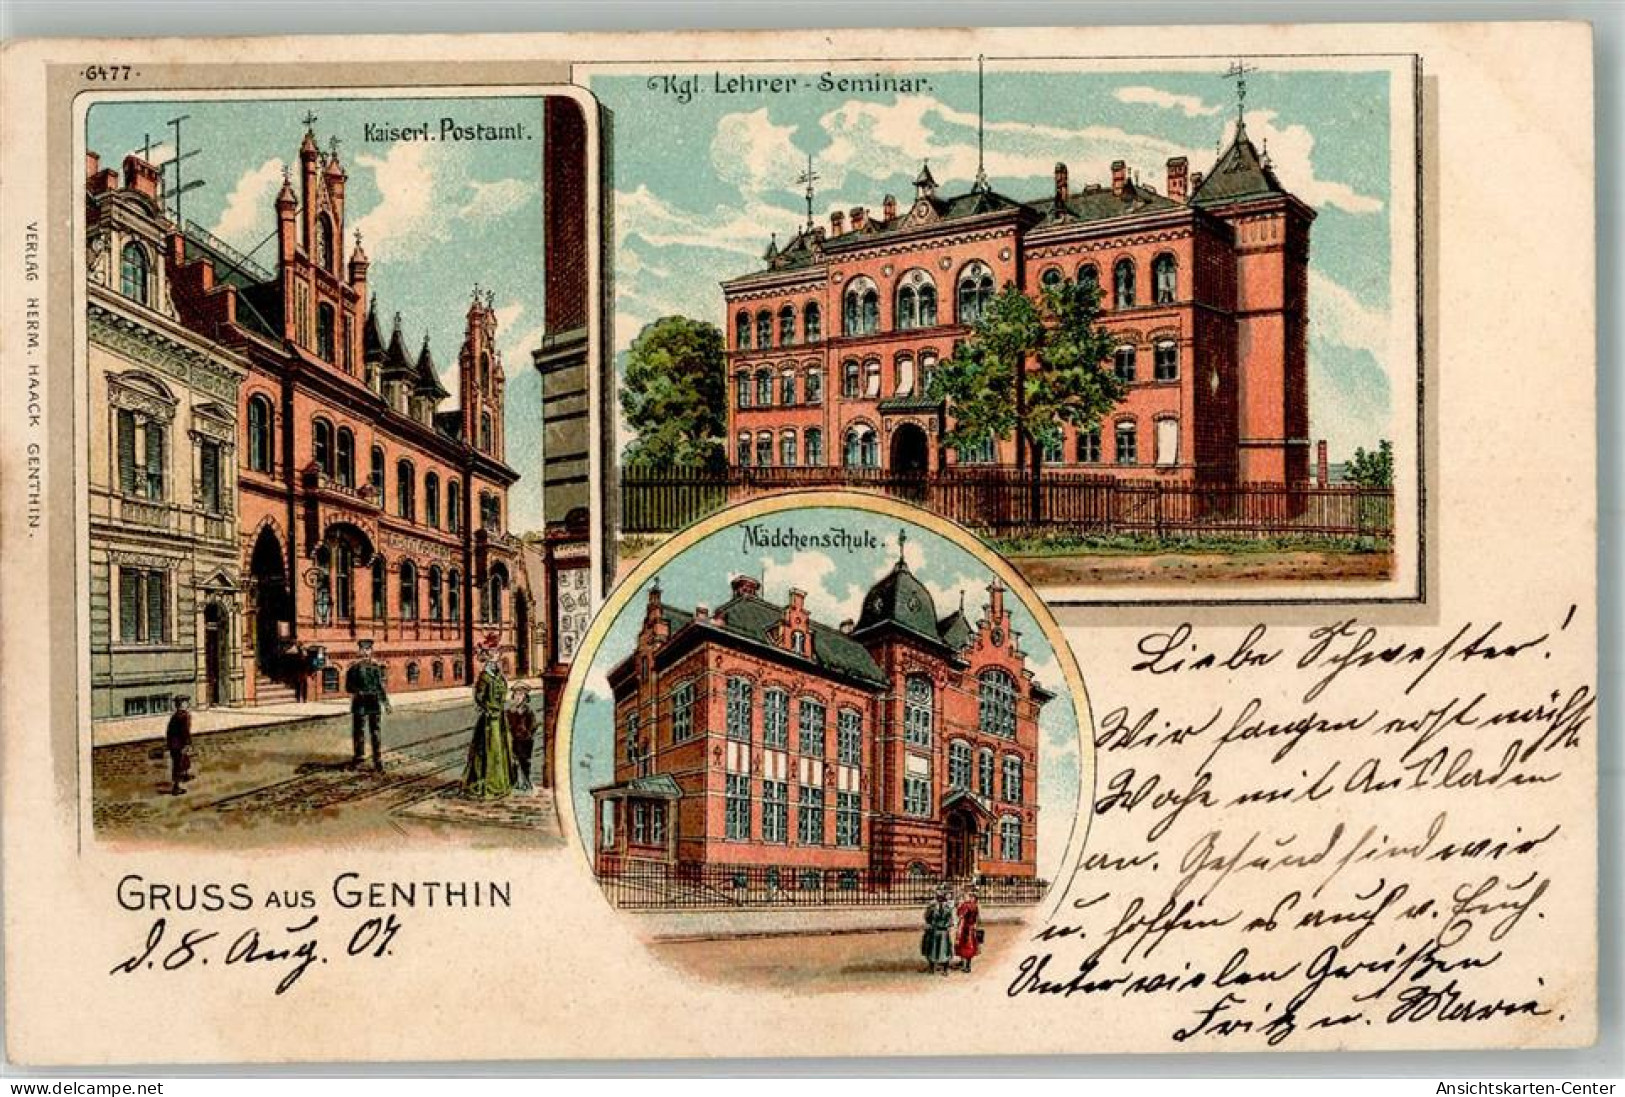 ·6477·
Kaiserl. Postamt.
Kgl. Lehrer-Seminar.
Mädchenschule.
VERLAG HERM. HAACK GENTHIN.
GRUSS AUS GENTHIN
d. 8. Aug. 07.
Liebe Schwester!
Wir fangen erst nächste
Woche mit Ausladen
an. Gesund sind wir
u. hoffen es auch v. Euch.
Unter vielen Grüßen
Fritz u. Marie.
Ansichtskarten-Center
https://www.ansichtskarten-center.de/